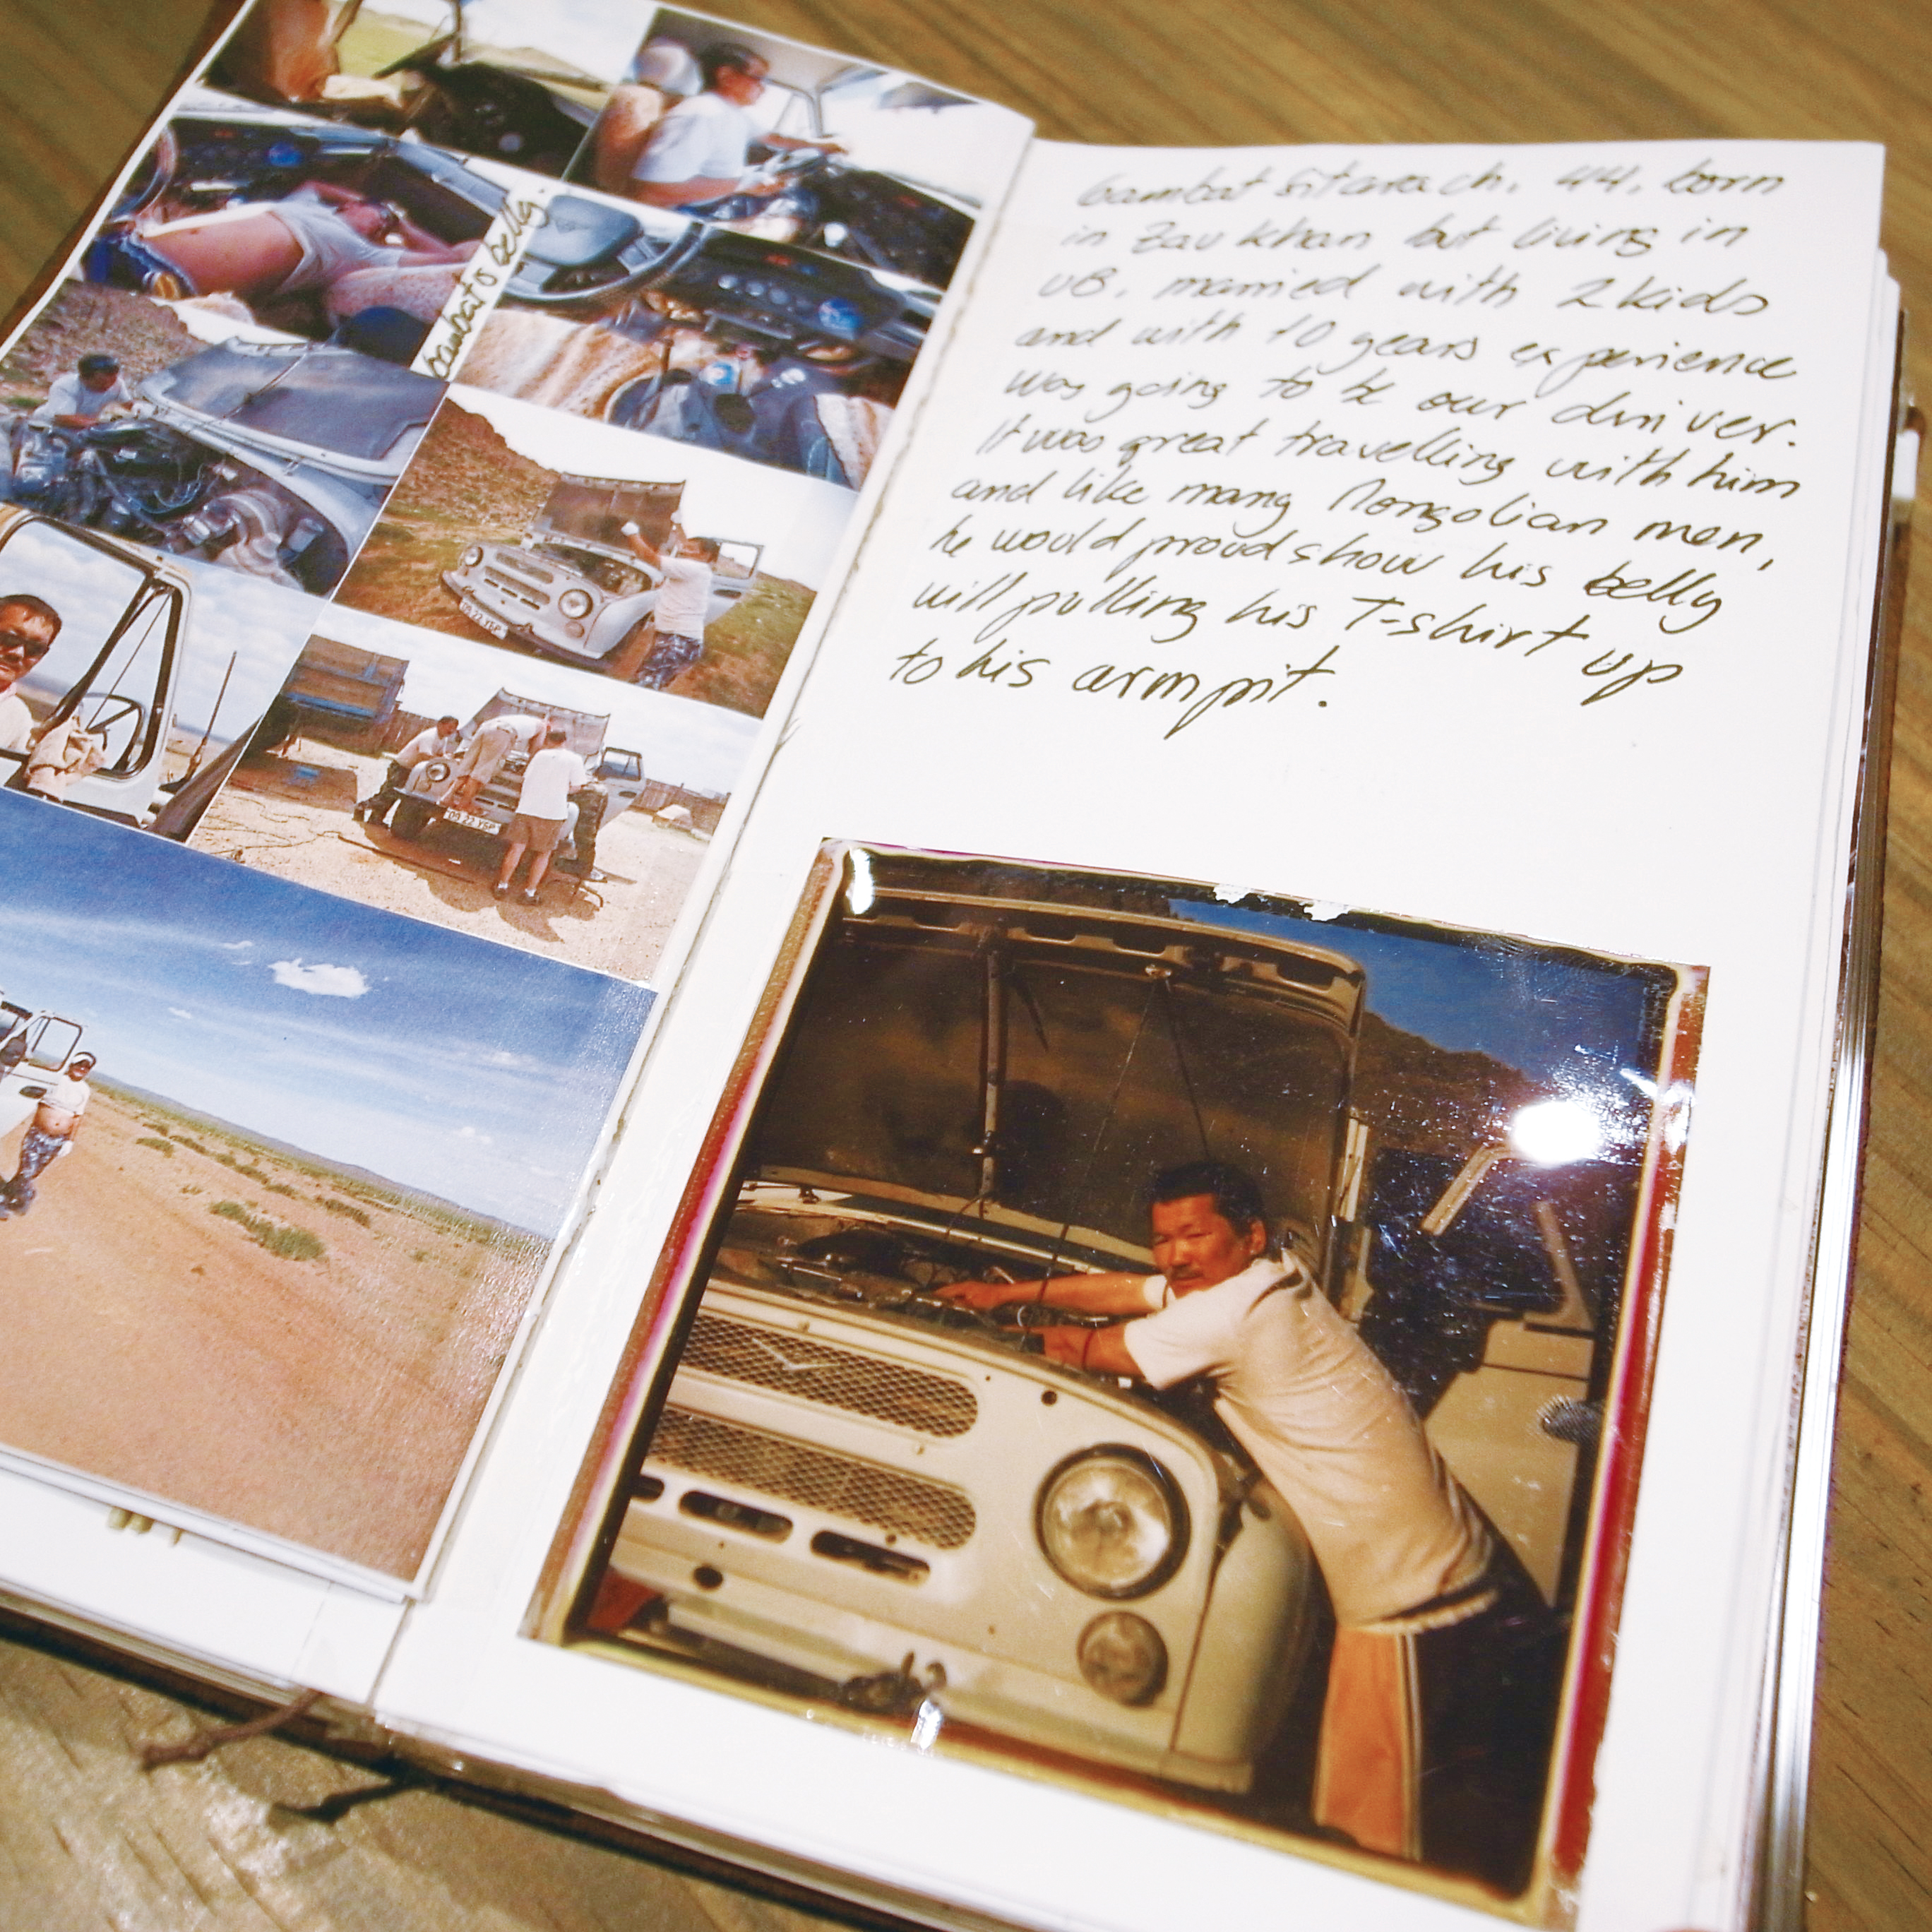 bambat's belly.
09 22 УБР
bambat Sitarach, 44, born
in Zavkhan but living in
UB, married with 2 kids
and with 10 years experience
was going to be our driver.
It was great travelling with him
and like many Mongolian men,
he would proud show his belly
will pulling his T-shirt up
to his armpit.